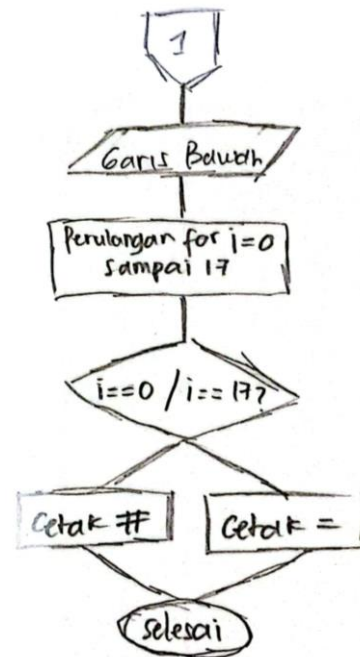 1
Garis Bawah
Perulangan for i=0
sampai 17
i==0 / i== 17?
Cetak #
Cetak =
selesai